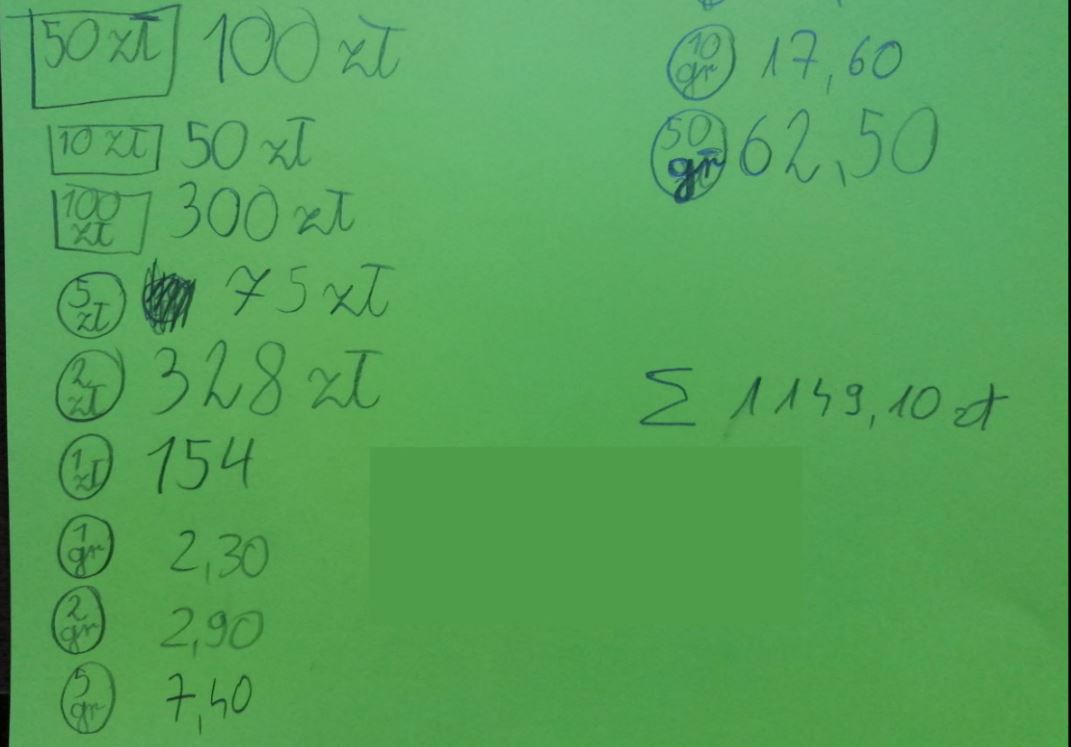 50 zł 100 zł
10 zł 50 zł
100 zł 300 zł
5 zł 75 zł
2 zł 328 zł
1 zł 154
1 gr 2,30
2 gr 2,90
5 gr 7,40
10 gr 17,60
50 gr 62,50
Σ 1149,10 zł